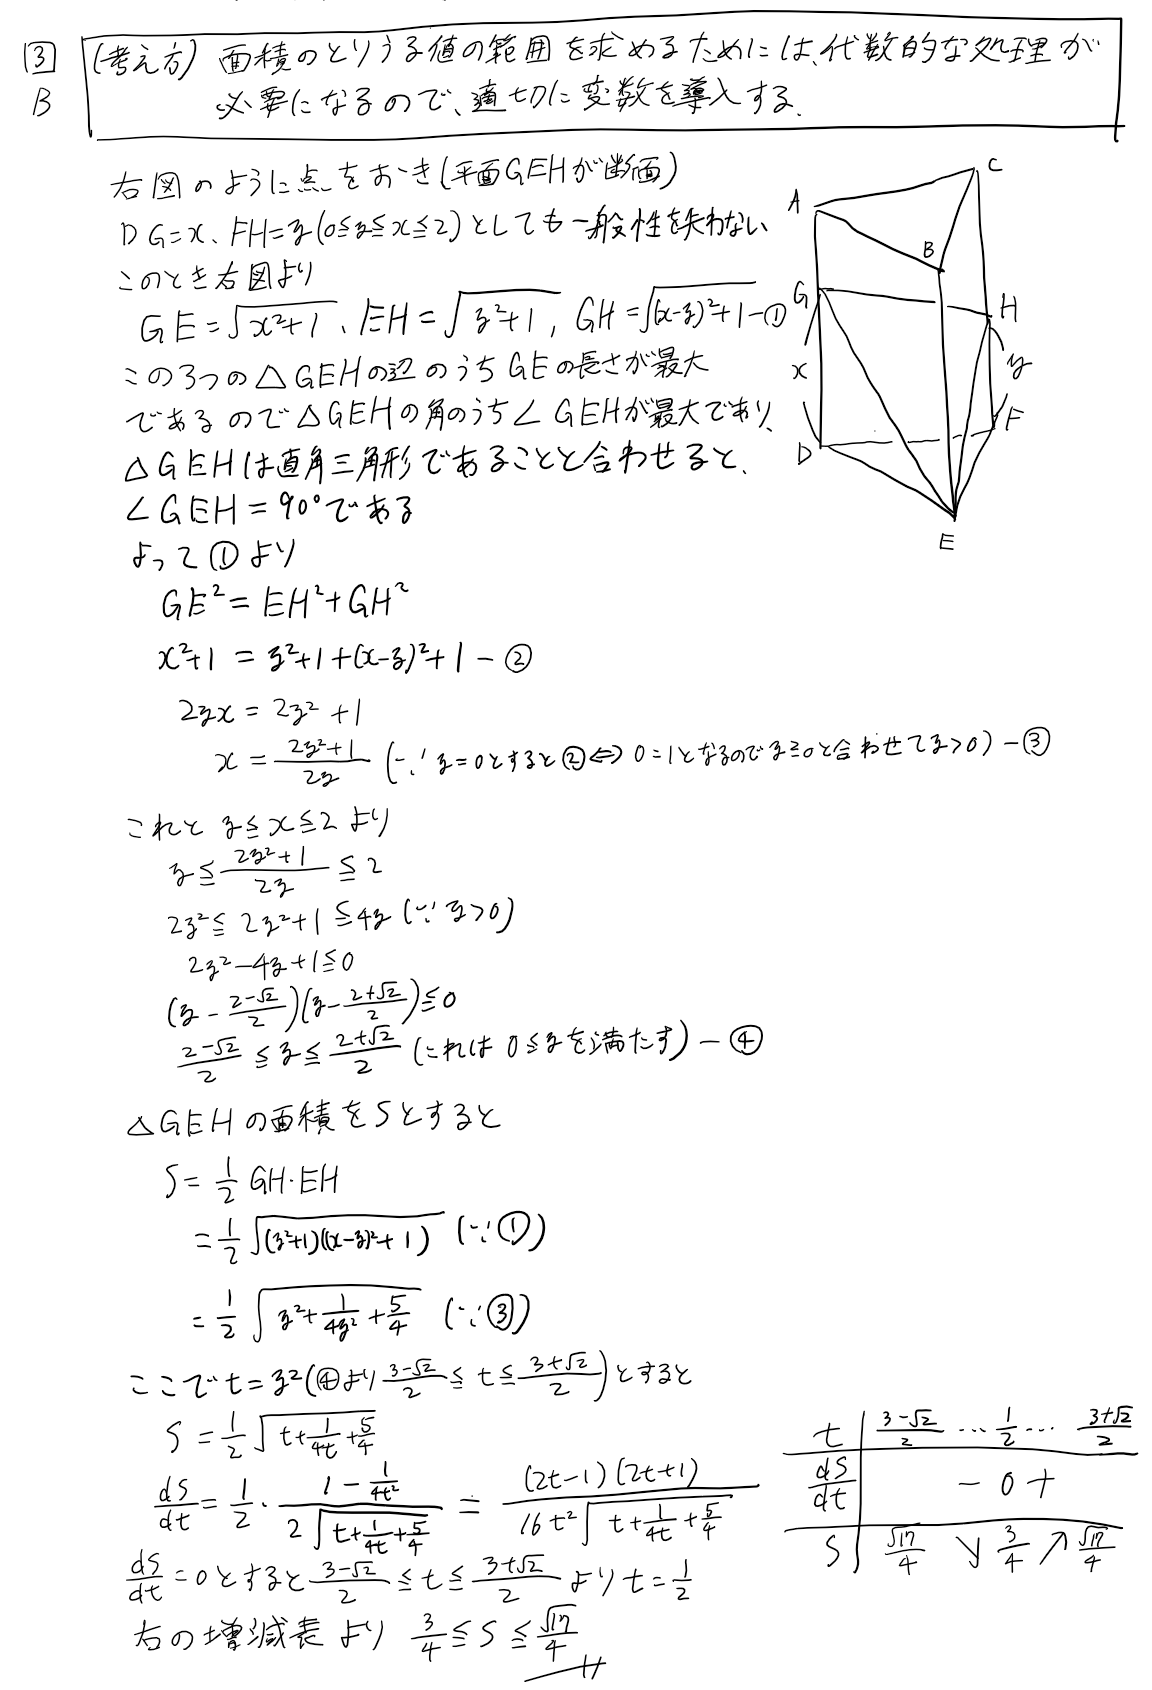 3
B
(考え方) 面積のとりうる値の範囲を求めるためには、代数的な処理が
必要になるので、適切に変数を導入する.
右図のように点をおき(平面GEHが断面)
DG=x、FH=y(0≦y≦x≦2)としても一般性を失わない
このとき右図より
GE=√(x²+1)、EH=√(y²+1), GH=√((x-y)²+1) -①
この3つの△GEHの辺のうちGEの長さが最大
であるので△GEHの角のうち∠GEHが最大であり、
△GEHは直角三角形であることと合わせると、
∠GEH=90°である
よって①より
GE²=EH²+GH²
x²+1 = y²+1+(x-y)²+1 -②
2yx = 2y²+1
x = (2y²+1)/(2y) (∵ y=0とすると②⇔0=1となるのでy≧0と合わせてy>0) -③
これと y≦x≦2より
y≦(2y²+1)/(2y)≦2
2y²≦2y²+1≦4y (∵ y>0)
2y²-4y+1≦0
(y-(2-√2)/2)(y-(2+√2)/2)≦0
(2-√2)/2≦y≦(2+√2)/2 (これは0≦yを満たす) -④
△GEHの面積をSとすると
S=1/2 GH・EH
=1/2 √((y²+1)((x-y)²+1)) (∵①)
=1/2 √(y²+1/(4y²)+5/4) (∵③)
ここでt=y²(④より(3-√2)/2≦t≦(3+√2)/2)とすると
S=1/2 √(t+1/(4t)+5/4)
dS/dt=1/2・(1-1/(4t²))/(2√(t+1/(4t)+5/4))=(2t-1)(2t+1)/(16t²√(t+1/(4t)+5/4))
dS/dt=0とすると(3-√2)/2≦t≦(3+√2)/2よりt=1/2
右の増減表より 3/4≦S≦√17/4
A
C
B
G
H
x
y
D
F
E
t (3-√2)/2 … 1/2 … (3+√2)/2
dS/dt - 0 +
S √17/4 ↘ 3/4 ↗ √17/4